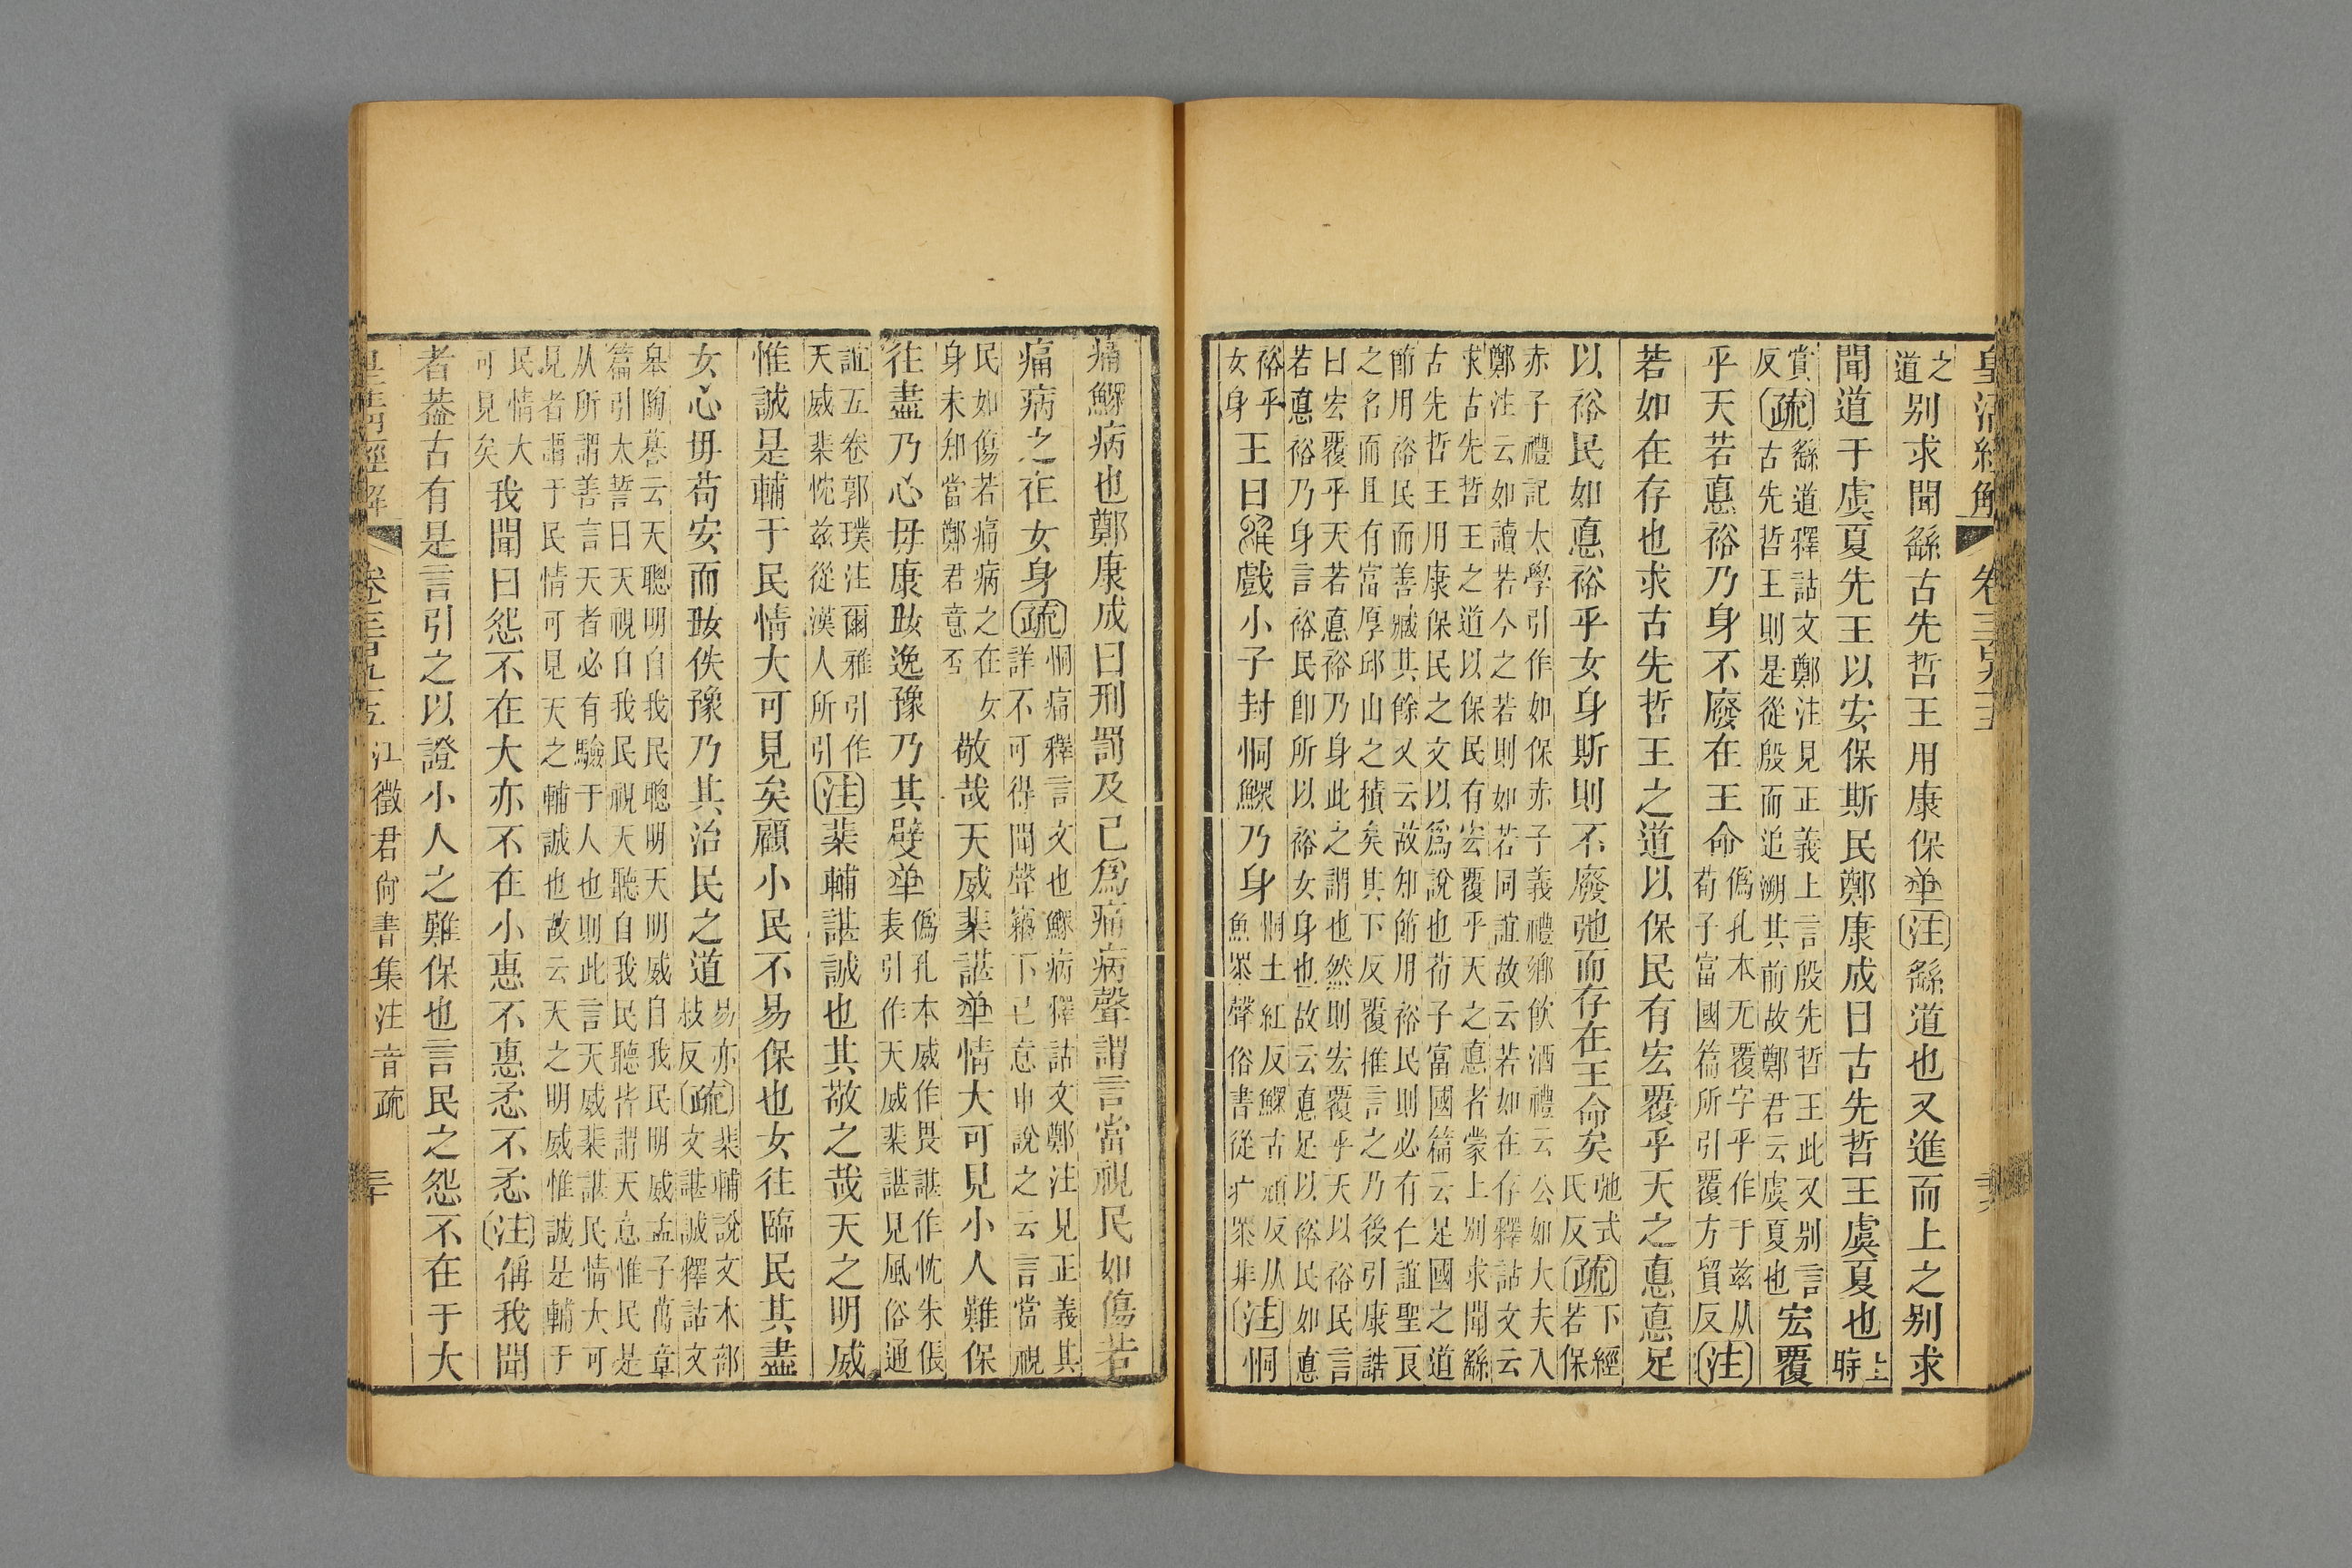 皇清經解 卷三百九十五
之
道
别求聞繇古先哲王用康保民〔注〕繇道也又進而上之别求
聞道于虞夏先王以安保斯民鄭康成曰古先哲王虞夏也
上
時
賞
反
〔疏〕
繇道釋詁文鄭注見正義上言殷先哲王此又别言
古先哲王則是從殷而追溯其前故鄭君云虞夏也
宏覆
乎天若悳裕乃身不廢在王命
僞孔本无覆字乎作于兹从
荀子富國篇所引覆方貿反
〔注〕
若如在存也求古先哲王之道以保民有宏覆乎天之悳悳足
以裕民如悳裕乎女身斯則不廢弛而存在王命矣
弛式
氏反
〔疏〕
下經
若保
赤子禮記太學引作如保赤子義禮鄉飲酒禮云公如大夫入
鄭注云如讀若今之若則如若同誼故云若如在存釋詁文云
求古先哲王之道以保民有宏覆乎天之悳者蒙上别求聞繇
古先哲王用康保民之文以爲說也荀子富國篇云足國之道
節用裕民而善臧其餘又云故知節用裕民則必有仁誼聖良
之名而且有富厚邱山之積矣其下反覆推言之乃後引康誥
曰宏覆乎天若悳裕乃身此之謂也然則宏覆乎天以裕民言
若悳裕乃身言裕民卽所以裕女身也故云悳足以裕民如悳
裕乎
女身
王曰戲小子封恫鰥乃身
恫土紅反鰥古頑反从
魚眔聲俗書從疒眔非
〔注〕恫
痛鰥病也鄭康成曰刑罰及己爲痛病聲謂言當視民如傷若
痛病之在女身〔疏〕
恫痛釋言文也鰥病釋詁文鄭注見正義其
詳不可得聞聲竊下已意申說之云言當視
民如傷若痛病之在女
身未知當鄭君意否
敬哉天威棐諶民情大可見小人難保
往盡乃心毋康㺸逸豫乃其嬖民
僞孔本威作畏諶作忱朱倀
表引作天威棐諶見風俗通
誼五卷郭璞注爾雅引作
天威棐忱兹從漢人所引
〔注〕棐輔諶誠也其敬之哉天之明威
惟誠是輔于民情大可見矣顧小民不易保也女往臨民其盡
女心毋苟安而㺸佚豫乃其治民之道
易亦
㪿反
〔疏〕
棐輔說文木部
文諶誠釋詁文
皋陶䔲云天聰明自我民聰明天明威自我民明威孟子萬章
篇引太誓曰天視自我民視天聽自我民聽皆謂天意惟民是
从所謂善言天者必有驗于人也則此言天威棐諶民情大可
見者謂于民情可見天之輔誠也故云天之明威惟誠是輔于
民情大
可見矣
我聞曰怨不在大亦不在小惠不惠懋不懋〔注〕偁我聞
者葢古有是言引之以證小人之難保也言民之怨不在于大
皇清經解 卷三百九十五 江徵君尙書集注音疏 三十